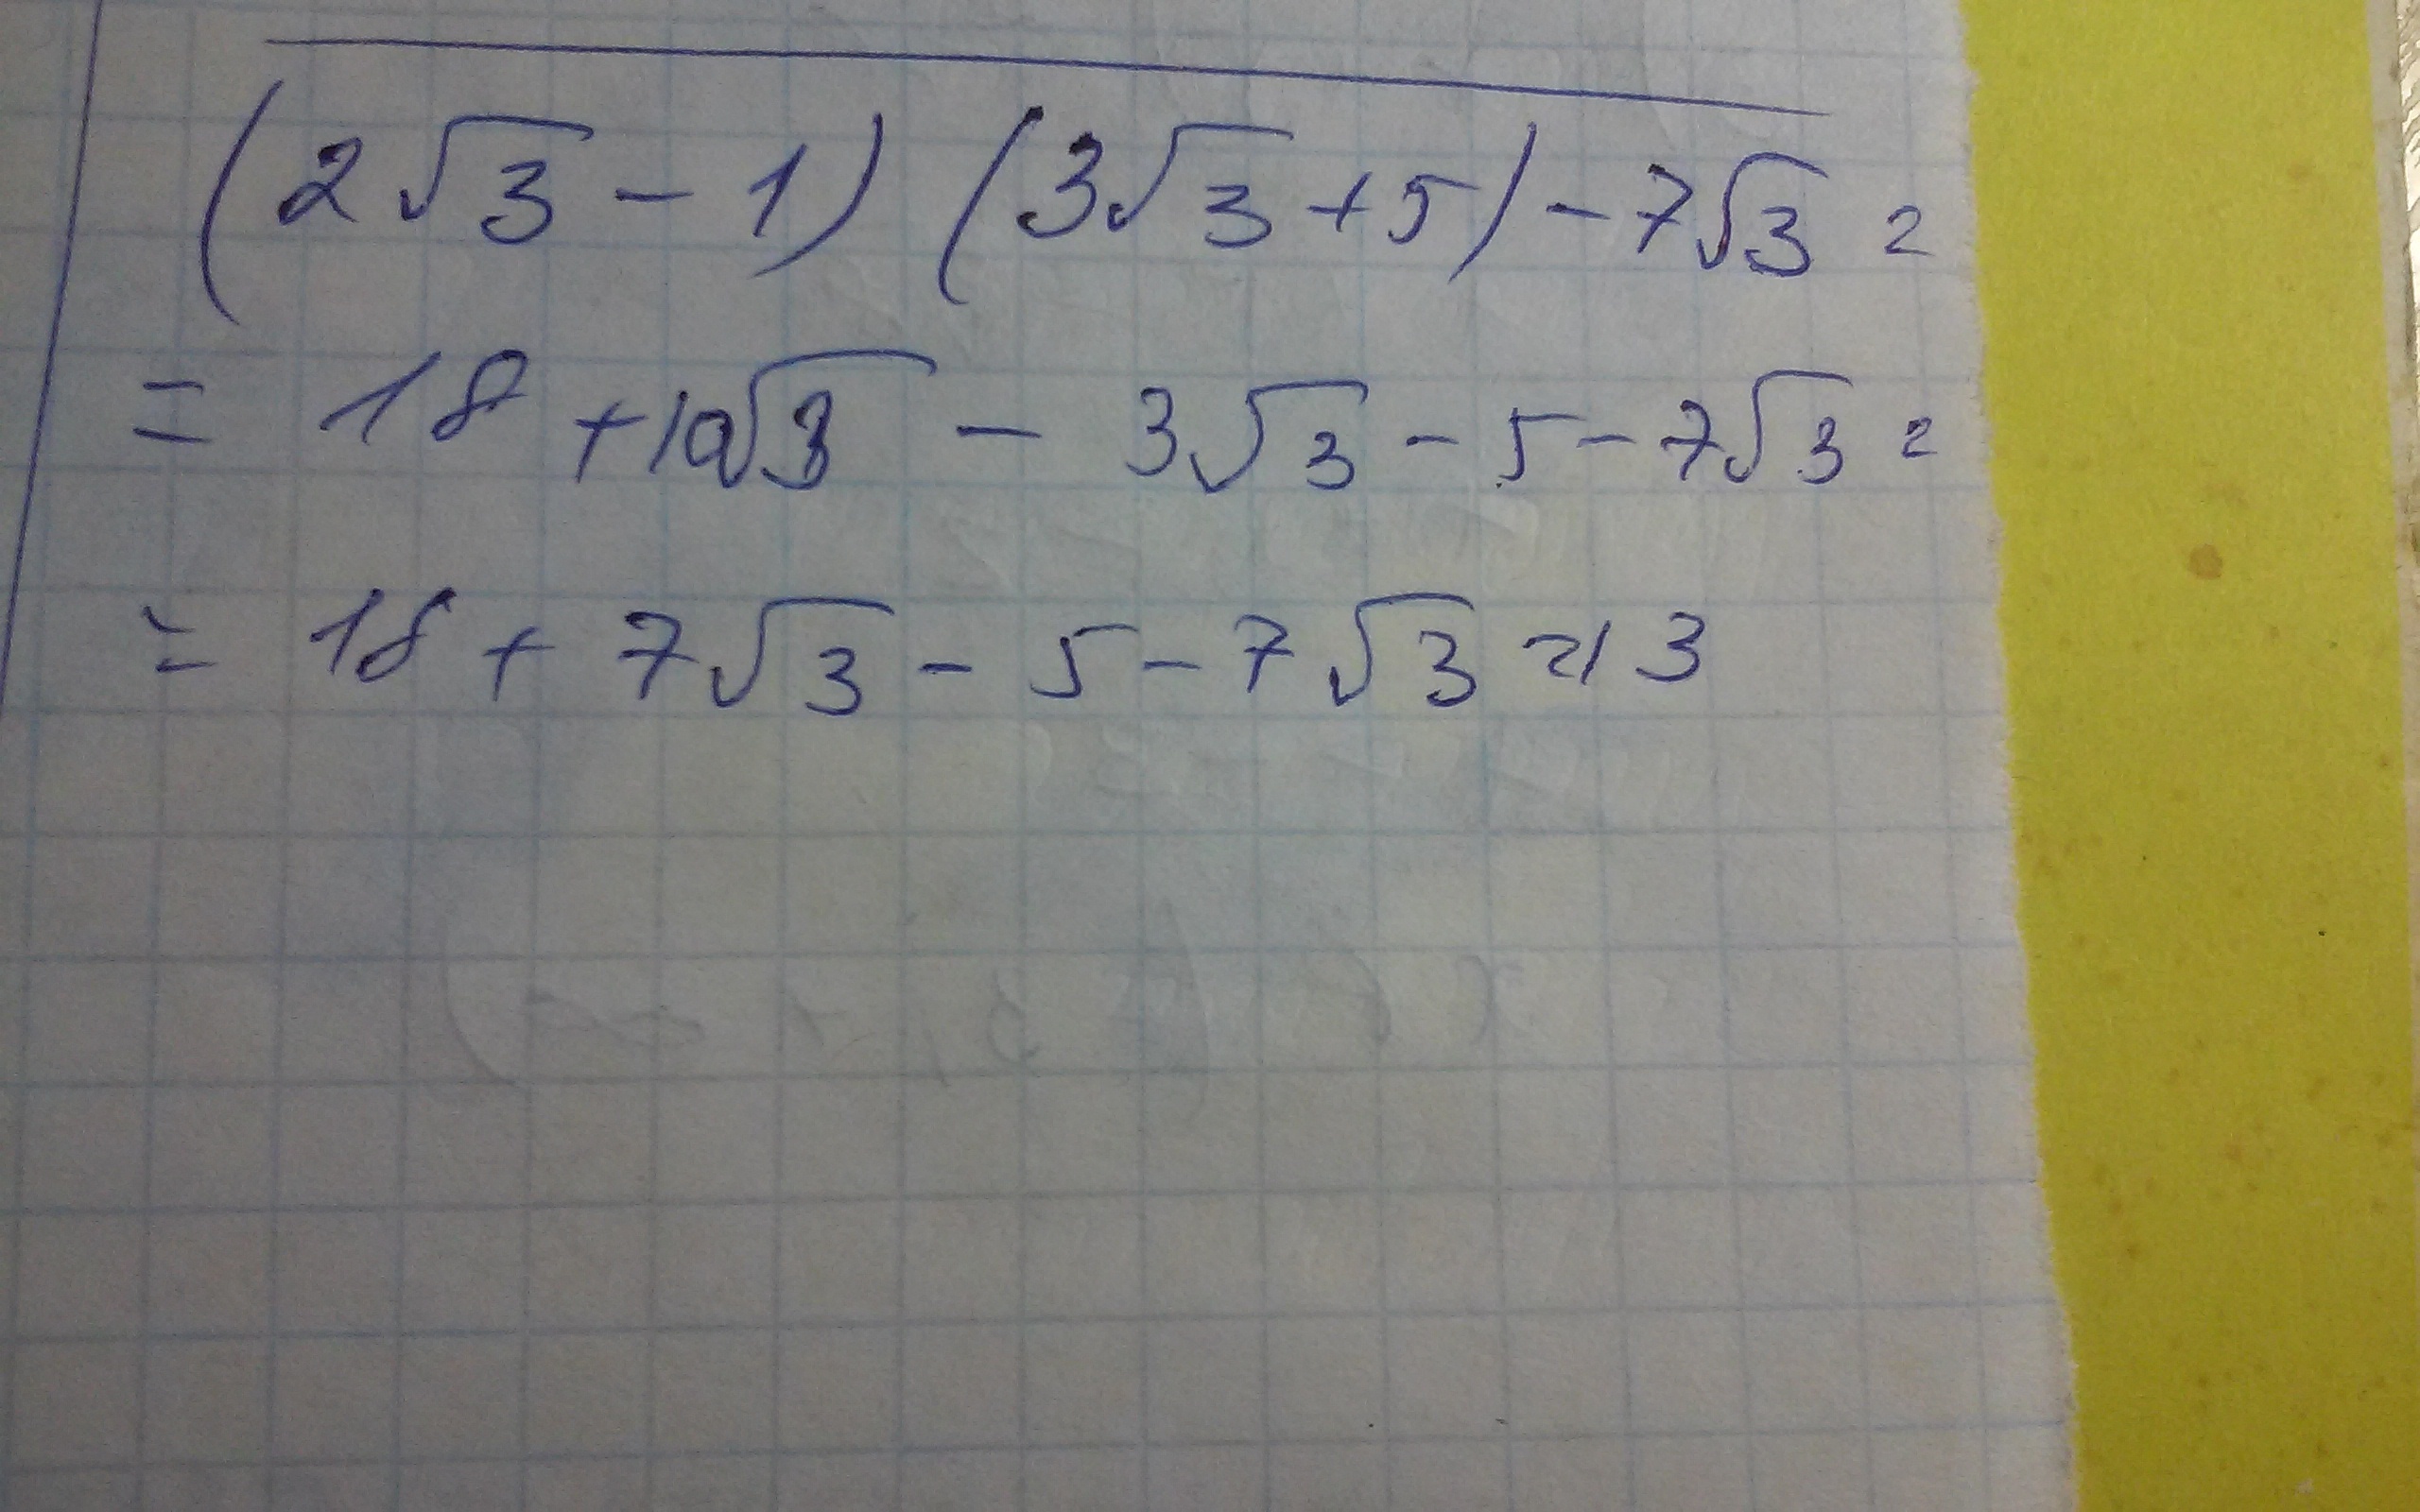 (2√3 - 1) (3√3 + 5) - 7√3 =
= 18 + 10√3 - 3√3 - 5 - 7√3 =
= 18 + 7√3 - 5 - 7√3 = 13